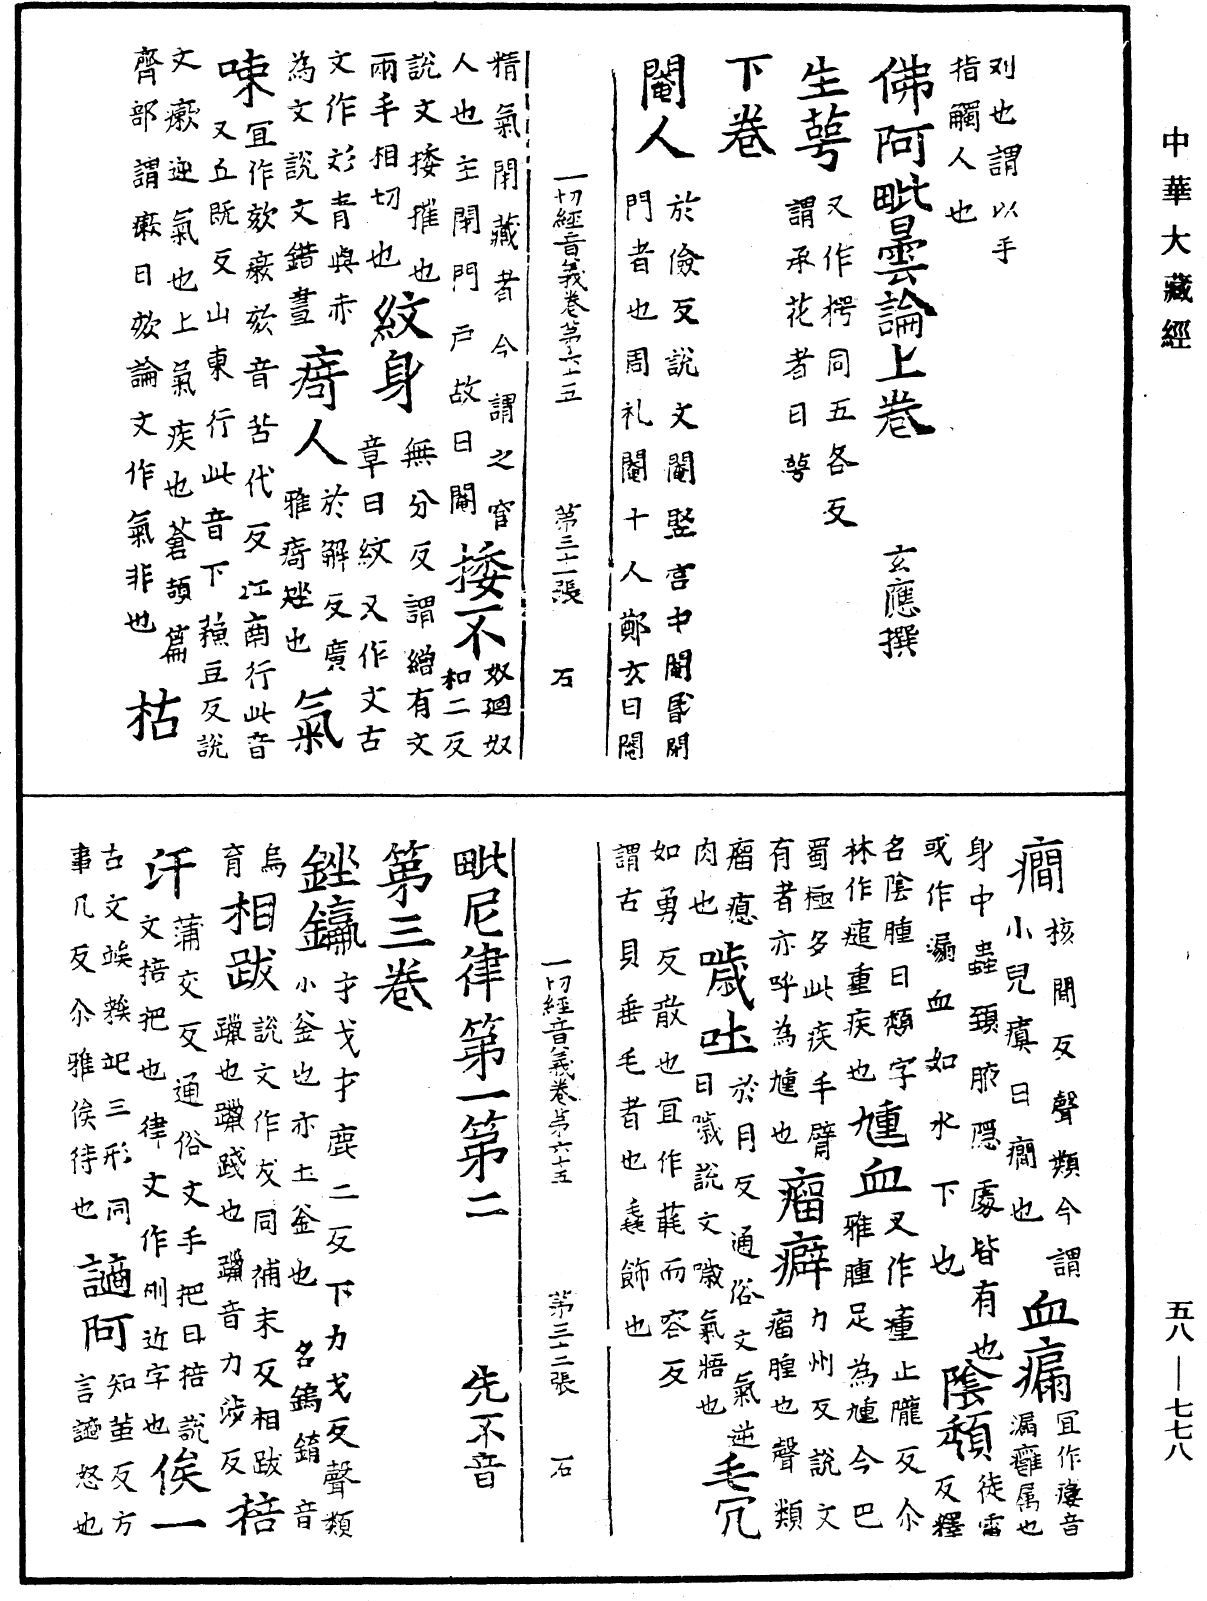 中華大藏經
刈也謂以手
指觸人也
佛阿毗曇論上卷 玄應撰
生蕚 又作㮙同五各反
謂承花者曰蕚
下卷
閹人 於儉反說文閹豎宮中閹昬閉
門者也周礼閹十人鄭玄曰閹
一切經音義卷第六十五 第三十一張 石
精氣閉藏者今謂之官
人也主閉門戶故曰閹 捼不 奴迴奴
和二反
說文捼摧也
兩手相切也 紋身 無分反謂繒有文
章曰紋又作文古
文作彣青與赤
為文說文錯畫 㾨人 於解反廣
雅㾨矬也 氣
㖒 宜作欬瘶欬音苦代反江南行此音
又丘既反山東行此音下蘓豆反說
文瘶逆氣也上氣疾也蒼頡篇
齊部謂瘶曰欬論文作氣非也 枯
癎 核間反聲類今謂
小兒瘨曰癎也 血㿃 宜作瘻音
漏癰属也
身中蟲頚腋隱處皆有也
或作漏血如水下也 陰㿗 徒雷
反釋
名陰腫曰㿗字
林作㿗重疾也 尰血 又作瘇止隴反尒
雅腫足為尰今巴
蜀極多此疾手臂
有者亦呼為尰也 瘤癖 力州反說文
瘤腫也聲類
瘤瘜
肉也 噦吐 於月反通俗文氣逆
曰噦說文噦氣牾也 毛冗
如勇反散也宜作㲨而容反
謂古貝垂毛者也毳飾也
一切經音義卷第六十五 第三十二張 石
毗尼律第一第二 先不音
第三卷
銼鑹 才戈才鹿二反下力戈反聲類
小釜也亦土釜也 名鎢錥音
烏
育 相跋 說文作癶同補末反相跋
躐也躐踐也躐音力涉反 掊
汗 蒲交反通俗文手把曰掊說
文掊把也律文作刖近字也 俟一
古文竢䇃𥏳三形同
事几反尒雅俟待也 謫阿 知革反方
言謫怒也
五八—七七八